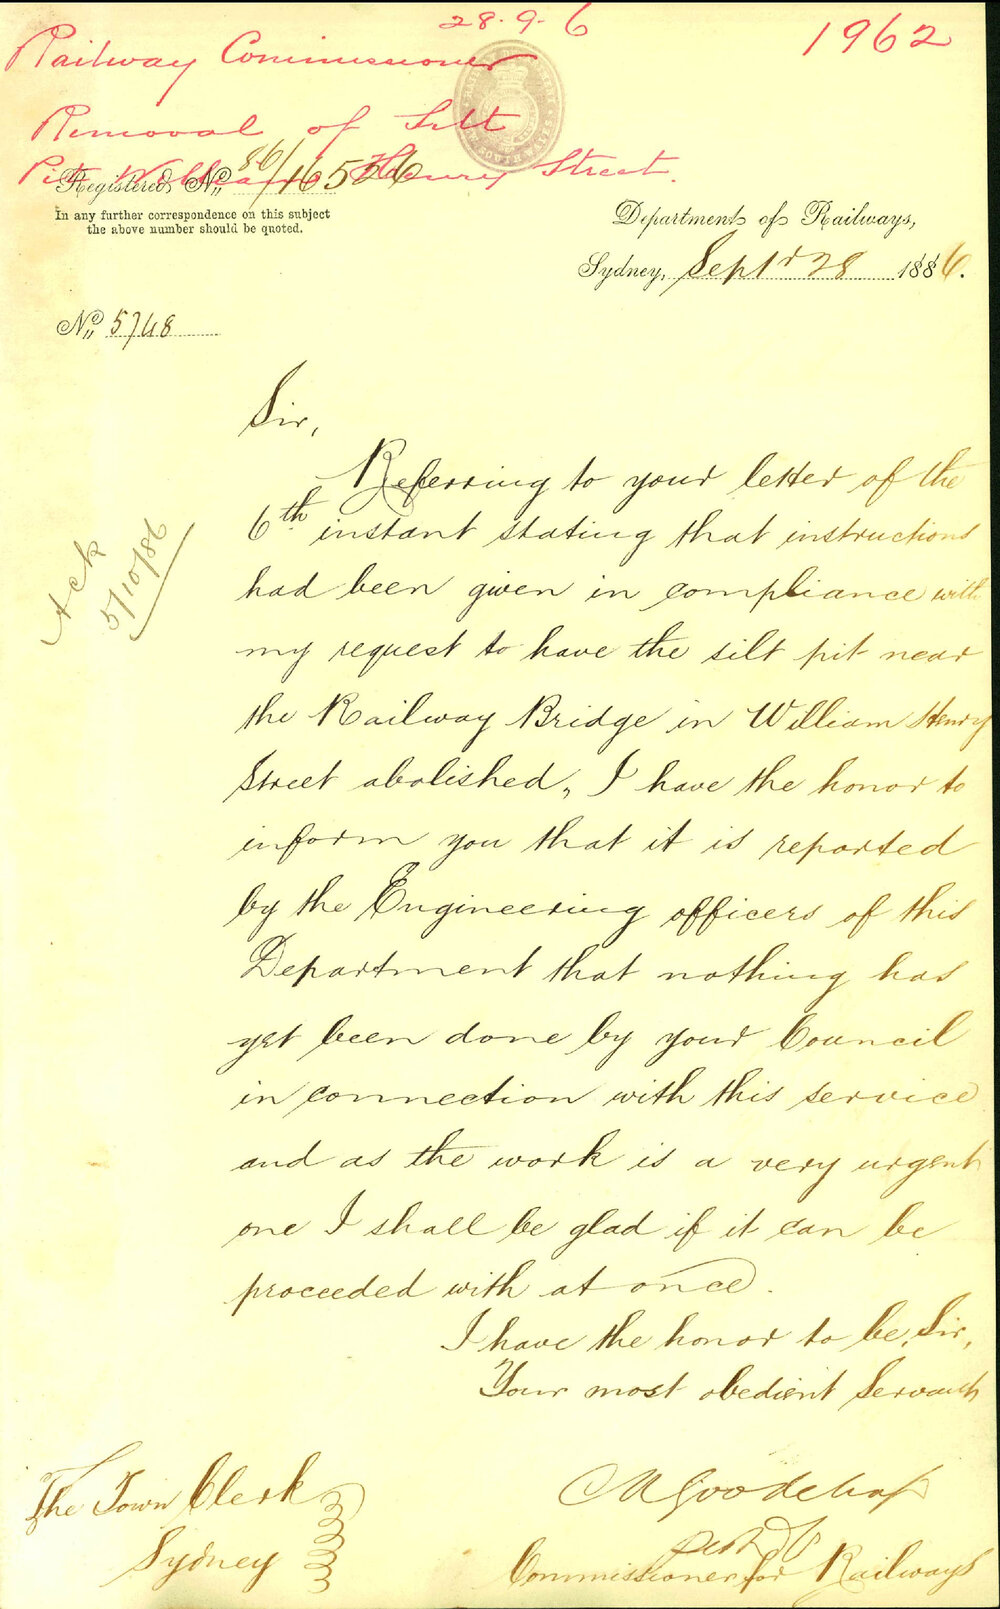 28.9.6
1962
Railway Commissioner
Removal of Silt
Pit William Henry Street.
Registered No. 86/16526
In any further correspondence on this subject
the above number should be quoted.
Department of Railways,
Sydney, Septr 28 1886.
No. 5748
Ack
5/10/86
Sir,
Referring to your letter of the
6th instant stating that instructions
had been given in compliance with
my request to have the silt pit near
the Railway Bridge in William Henry
Street abolished, I have the honor to
inform you that it is reported
by the Engineering officers of this
Department that nothing has
yet been done by your Council
in connection with this service
and as the work is a very urgent
one I shall be glad if it can be
proceeded with at once.
I have the honor to be, Sir,
Your most obedient Servant
Goodchap
Commissioner for Railways
The Town Clerk
Sydney